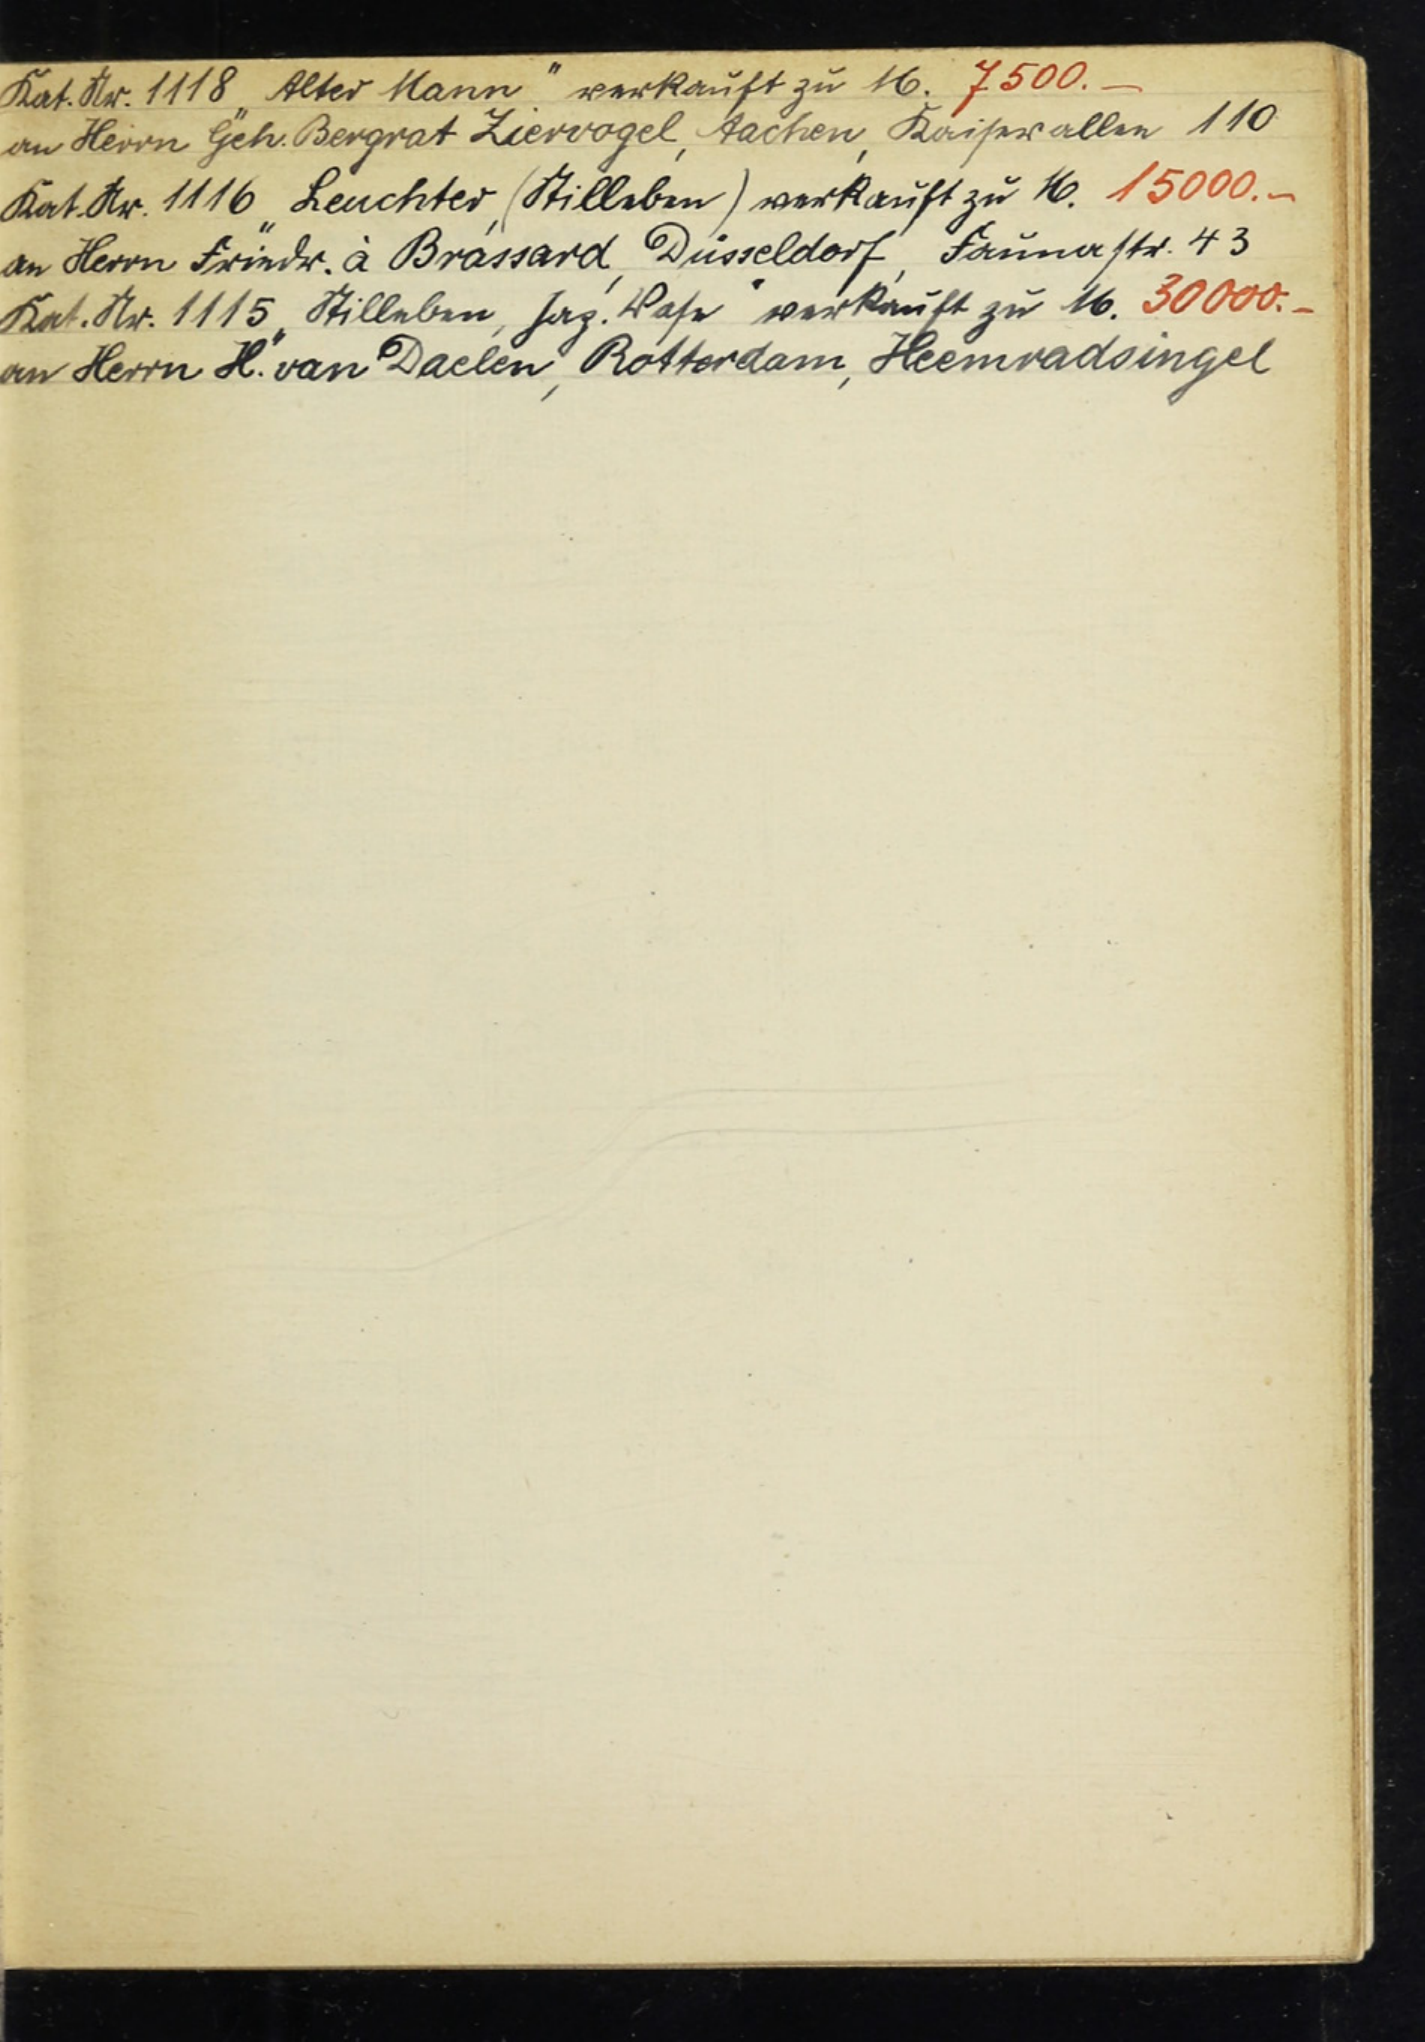 Kat. Nr. 1118 „Alter Mann" verkauft zu M. 7500.—
an Herrn Geh. Bergrat Ziervogel, Aachen, Kaiserallee 110
Kat. Nr. 1116 „Leuchter, (Stilleben) verkauft zu M. 15000.—
an Herrn Friedr. à Brassard, Düsseldorf, Faunastr. 43
Kat. Nr. 1115 „Stilleben, jap. Vase" verkauft zu M. 30000.—
an Herrn H. van Daelen, Rotterdam, Heemradsingel